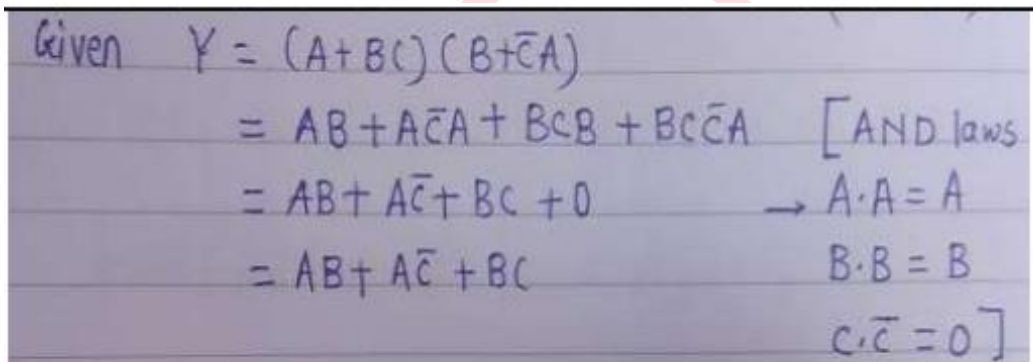 Given Y = (A+BC)(B+C̅A)
= AB + AC̅A + BCB + BCC̅A [AND laws
= AB + AC̅ + BC + 0 → A·A = A
= AB + AC̅ + BC B·B = B
C·C̅ = 0]